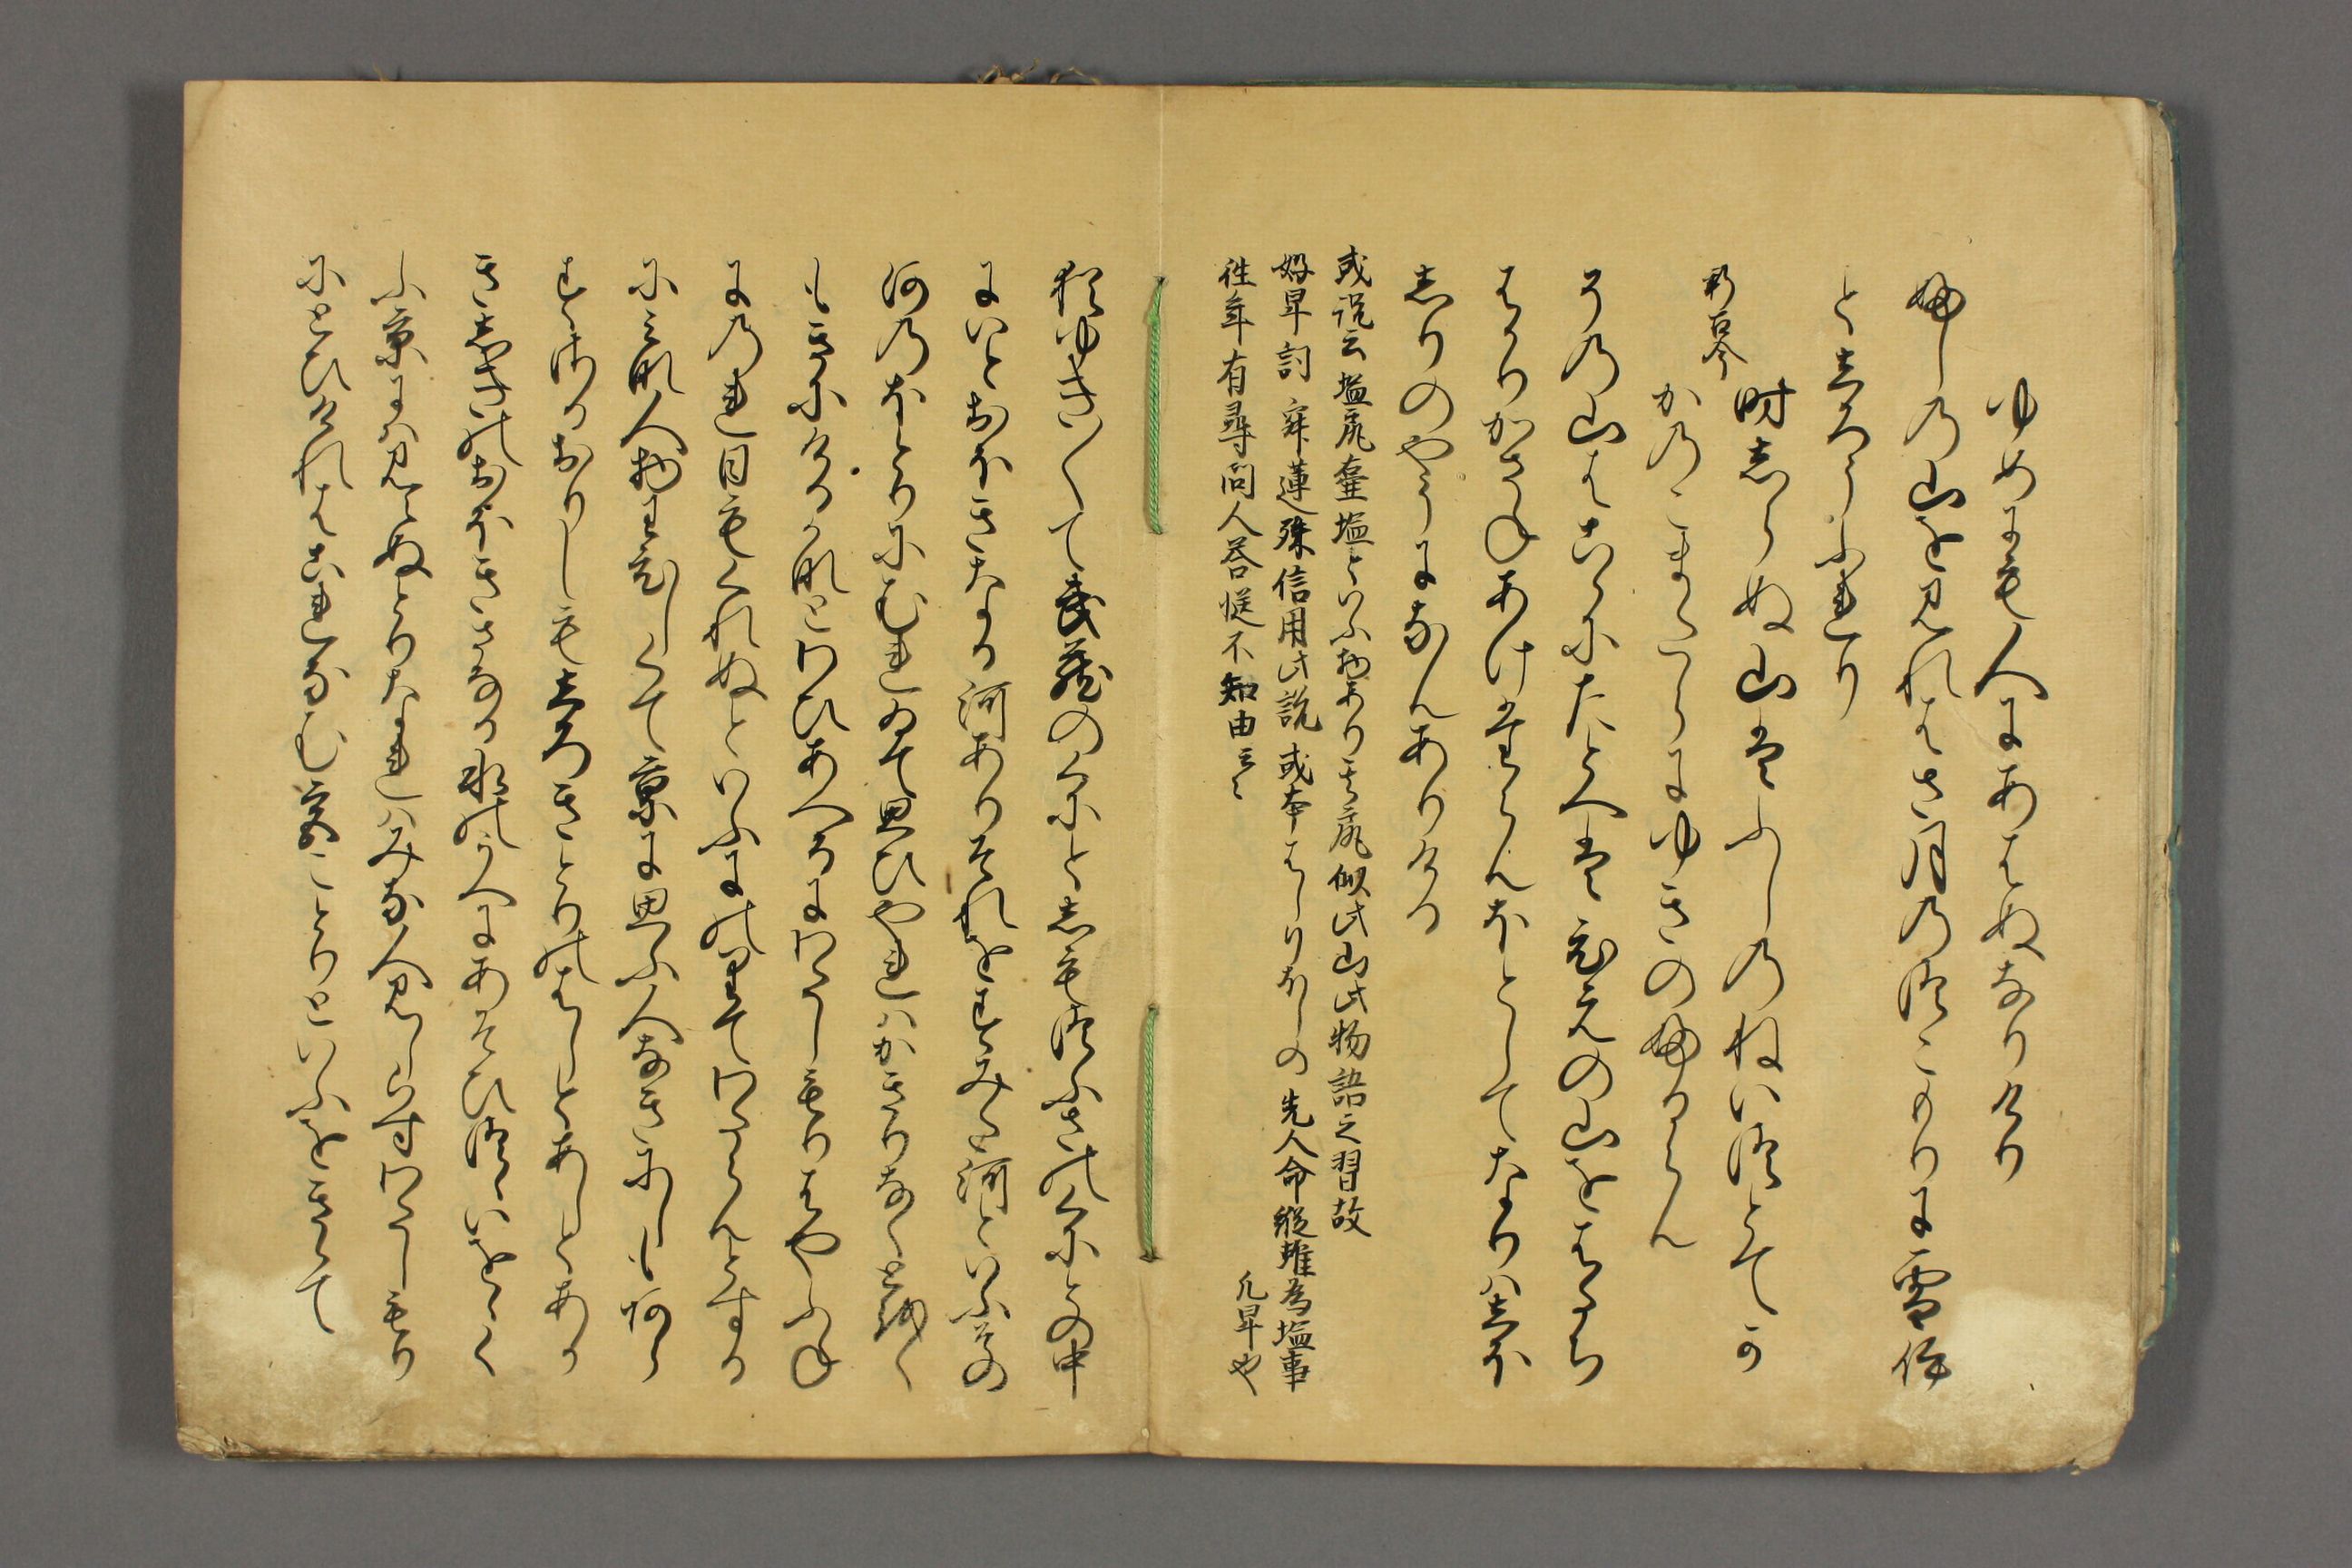 ゆめにも人にあはぬなりけり
ふしの山を見れはさ月のつこもりに雪い
としろうふれり
新古今
時しらぬ山はふしのねいつとてか
かのこまたらにゆきのふるらん
その山はこゝにたとへはひえの山をはたち
はかりかさねあけたらんほとしてなりはしほ
しりのやうになんありける
或説云塩尻壷塩といふ物あり其尻似此山此物語之習故
好卑詞 寂蓮殊信用此説 或本はしりほしの 先人命縦雖為塩事
凡卑也
往年有尋問人答惣不知由云々
猶ゆき〱て武蔵のくにとしもつふさのくにとの中
にいとおほきなる河ありそれをすみた河といふその
河のほとりにむれゐて思ひやれはかきりなくとをく
もきにけるかなとわひあへるにわたしもりはやふね
にのれ日もくれぬといふにのりてわたらんとする
にみな人物わひしくて京に思ふ人なきにしもあら
すさるおりしもしろきとりのはしとあしとあか
きしきのおほきさなる水のうへにあそひつゝいをゝく
ふ京には見えぬとりなれはみな人見しらすわたしもり
にとひけれはこれなむ宮ことりといふをきゝて